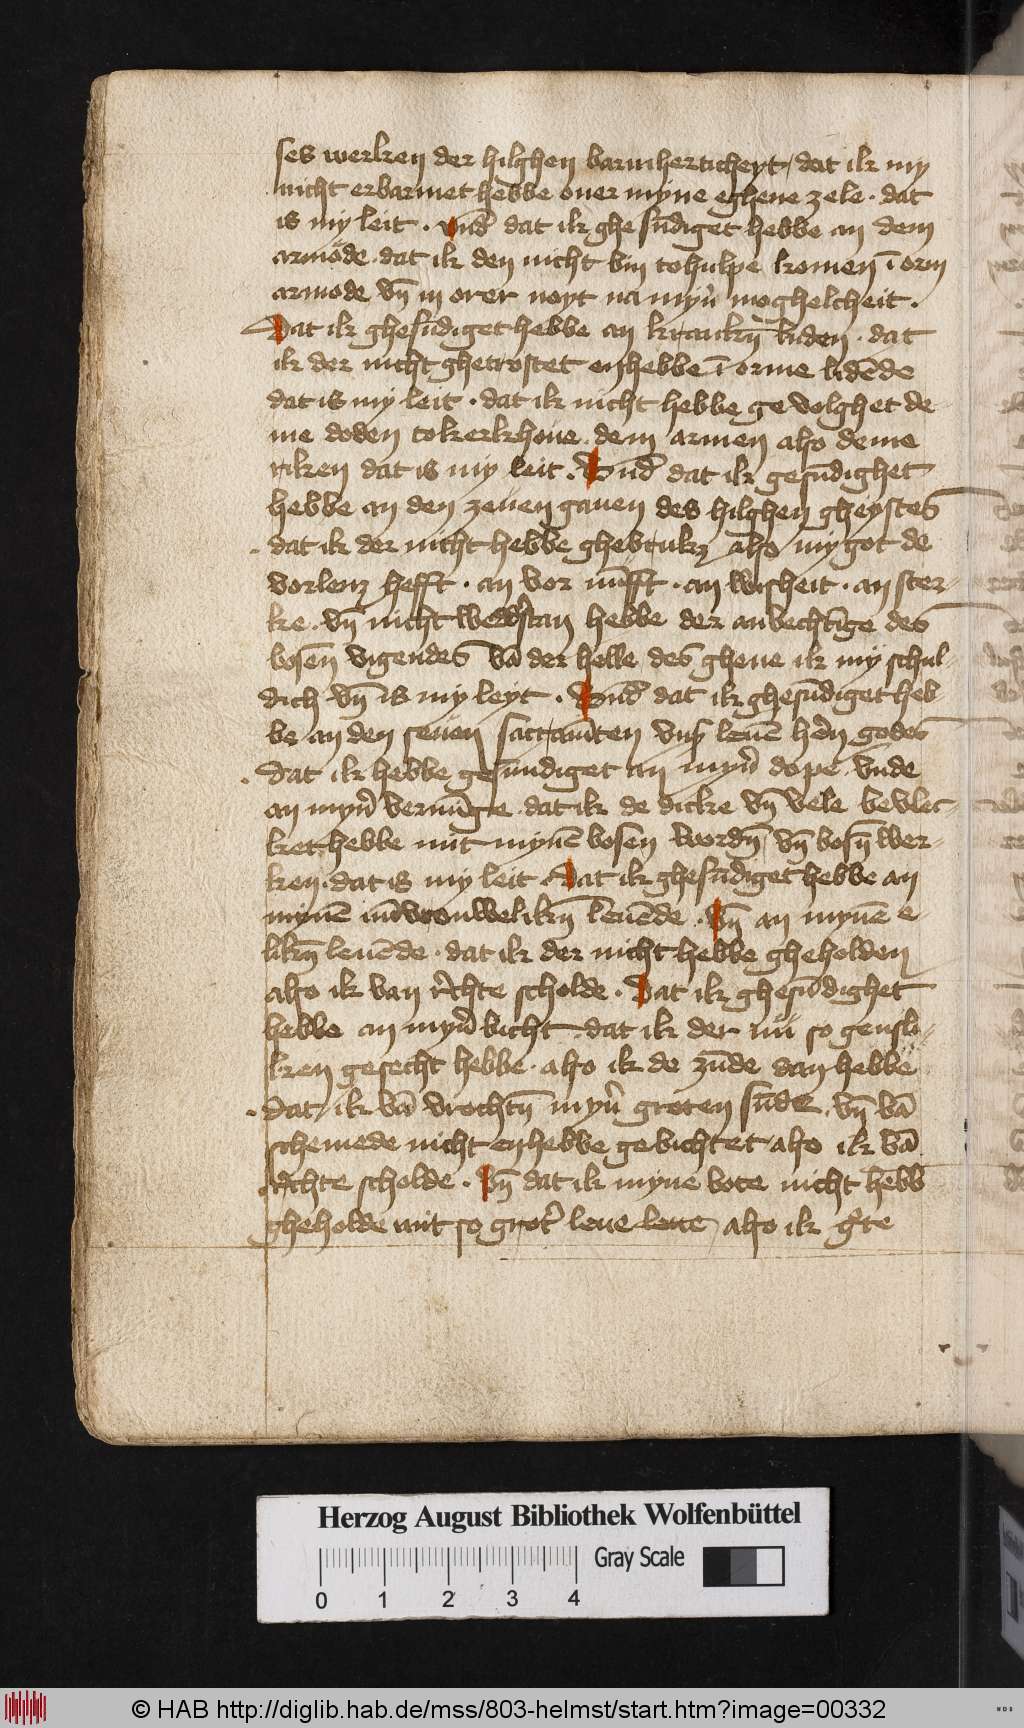 ses werken der hilghen barmherticheyt / dat ik my
nicht erbarmet hebbe ouer myne eghene zele · dat
is my leit · vnd̄ dat ik ghe sūdiget hebbe an dem
armode · dat ik den nicht bin to hulpe komen ī orm
armode vn̄ in orer noyt na myn̄ moghelcheit ·
Dat ik ghesūdiget hebbe an krankn̄ luden · dat
ik der nicht ghetrostet enhebbe ī orme lidēde
dat is my leit · dat ik nicht hebbe ge volghet de
me doden to kerkhoue · dem armen also deme
riken dat is my leit · Vnd̄ dat ik gesūdighet
hebbe an den zeuen gauen des hilghen gheystes
dat ik der nicht hebbe ghebrukꝫ also my got de
vorlenꝫ hefft · an vor nūfft · an wisheit · an ster-
ke · vn̄ nicht wedd̓stan hebbe der anvechtīge des
bosen vigendes vā der helle des gheue ik my schul-
dich vn̄ is my leyt · Vnd̄ dat ik ghesūdiget heb
be an den seuen sacramēten vnß leuē hern̄ godes
dat ik hebbe gesundiget an myn̄ dope vnde
an myn̄ vermīge · dat ik de dicke vn̄ vele bevlec-
ket hebbe mit mynē bosen wordn̄ vn̄ bosn̄ wer-
ken · dat is my leit · Dat ik ghesūdiget hebbe an
mynē iūcvrouwelikn̄ leuēde · vn̄ an mynē e-
likn̄ leuēde · dat ik der nicht hebbe gheholden
also ik van rechte scholde · Dat ik ghesūdighet
hebbe an myn̄ bicht dat ik der nü so gensli-
ken gesecht hebbe · also ik de zūde dan hebbe
dat ik vā vrochtn̄ myn̄ groten sūde · vn̄ vā
schemede nicht enhebbe gebichtet also ik vā
rechte scholde · Vn̄ dat ik myne bote nicht hebb
gheholde mit so grot̓ leue leue also ik
Herzog August Bibliothek Wolfenbüttel
Gray Scale
0 1 2 3 4
© HAB http://diglib.hab.de/mss/803-helmst/start.htm?image=00332